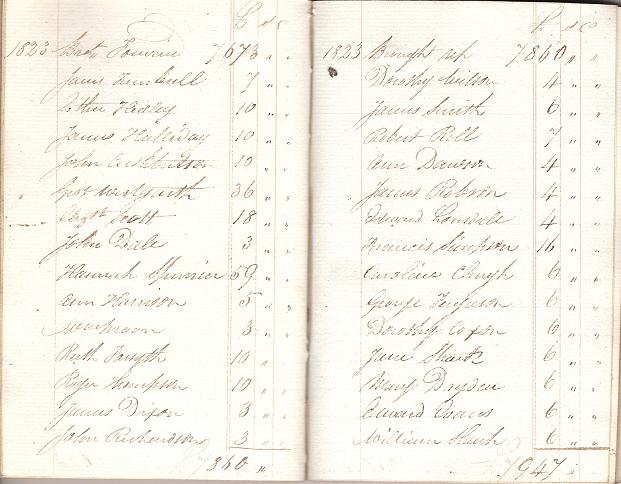 £ s d
1823 Brot Forward 7673 " "
James Turnbull 7 " "
Hedley 10 " "
James Halliday 10 " "
John Cuthbertson 10 " "
36 " "
Scott 18 " "
John Dale 3 " "
Hannah Spurrier 59 " "
Ann Harrison 5 " "
3 " "
Ruth Forsyth 10 " "
Roger Thompson 10 " "
James Dixon 3 " "
John Richardson 3 " "
7860 "
£ s d
1823 Brought up 7860 " "
Dorothy Wilson 4 " "
James Smith 6 " "
Robert Bell 7 " "
Ann Dawson 4 " "
James Robson 4 " "
Edward Lonsdale 4 " "
Francis Simpson 16 " "
Caroline Clough 6 " "
George Ferguson 6 " "
Dorothy Coxon 6 " "
Jane 6 " "
Mary Dryden 6 " "
Edward Evans 6 " "
William 6 " "
7947 "